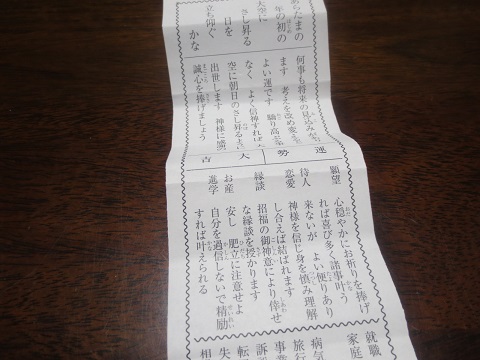 あらたまの
年の初の
大空に
さし昇る
日を
立ち仰ぐ
かな
何事も将来の見込みが
ます 考えを改め変え
よい運です 驕り高ぶ
なく よく信神すれば
空に朝日のさし昇る
出世します 神様に感謝
誠心を捧げましょう
運勢
大吉
願望 心穏やかにお祈りを捧げ
れば喜び多く諸事叶う
待人 来ないが よい便りあり
恋愛 神様を信じ身を慎み理解
し合えば結ばれます
縁談 招福の御神意により倖せ
な縁談を授かります
お産 安し 肥立に注意せよ
進学 自分を過信しないで精励
すれば叶えられる
就職
家庭
病気
旅行
事業
訴
転
失
相